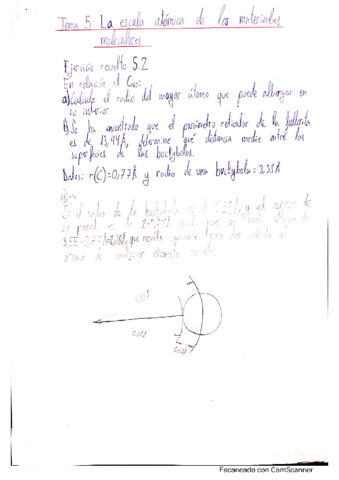 Tema 5: La escala atómica de los materiales
moleculares
Ejercicio resuelto 5.2
En relación al C60:
a) Calcule el radio del mayor átomo que puede albergar en
su interior
b) Se ha encontrado que el parámetro reticular de la fullerita
es de 13,94Å, determine qué distancia media entre las
superficies de las buckybolas.
Datos: r(C)=0,77Å y radio de una buckybola=3,55Å
a)
Si el radio de la buckybola es de 3,55Å, y el espesor de
su pared es de
3,55-0,77Å=2,78Å, que resulta para dar cabida al
átomo de cualquier elemento
3,55Å
0,77Å
Escaneado con CamScanner